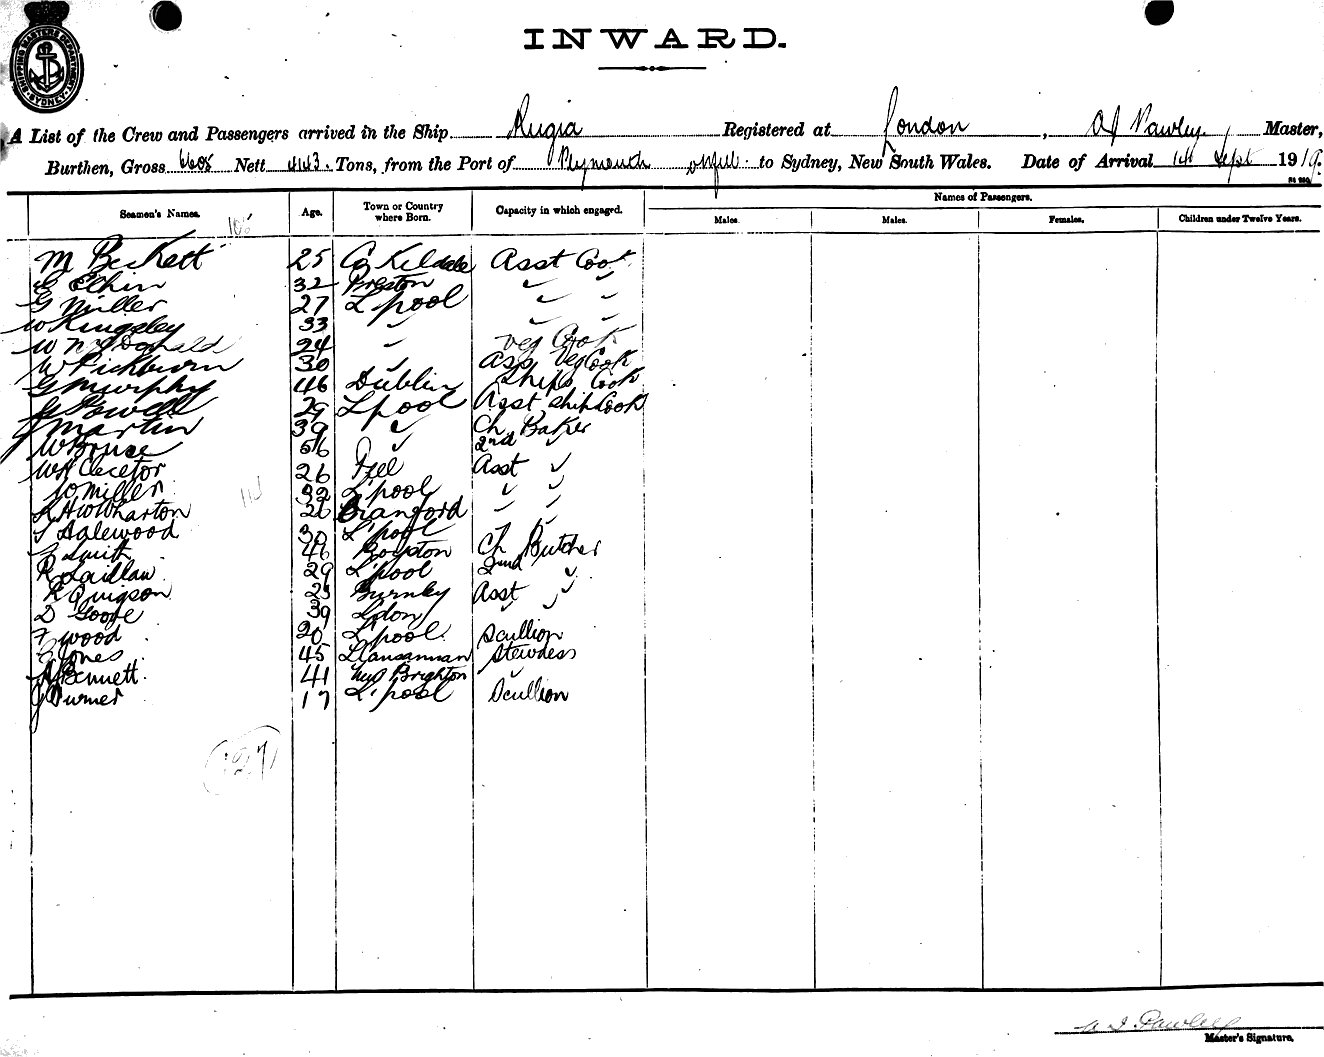 SHIPPING MASTERS DEPARTMENT SYDNEY
INWARD.
A List of the Crew and Passengers arrived in the Ship Rugia Registered at London, A J Pawley Master,
Burthen, Gross 6605 Nett 4143. Tons, from the Port of Plymouth to Sydney, New South Wales. Date of Arrival 14 Sept 1919.
Seamen's Names. Age. Town or Country where Born. Capacity in which engaged. Names of Passengers.
Males. Males. Females. Children under Twelve Years.
M Beckett 25 Co Kildale Asst Cook
E Elkin 32 Preston " "
G Miller 27 L'pool " "
W Kingsley 33 " " "
W McDonald 24 " Veg Cook
W Pickburn 30 " Ass Veg Cook
G Murphy 46 Dublin Ships Cook
Powell 29 L'pool Asst ship Cook
J Martin 39 " Ch Baker
W Bruce 56 " 2nd "
26 Peel Asst "
W Miller 32 L'pool " "
H W Wharton Cranford " "
T Halewood 30 L'pool "
Smith 46 Ch Butcher
R Laidlaw 29 L'pool 2nd "
R Quigson 25 Burnley Asst "
D Goore 39 L'don " "
F Wood 20 L'pool Scullion
E Jones 45 Llansannan Stewdess
Bennett 41 New Brighton "
J Turner 17 L'pool Scullion
127
A J Pawley
Master's Signature.